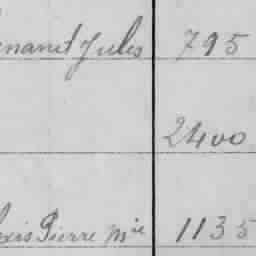 Jules 795
2400
Pierre Mie 1135